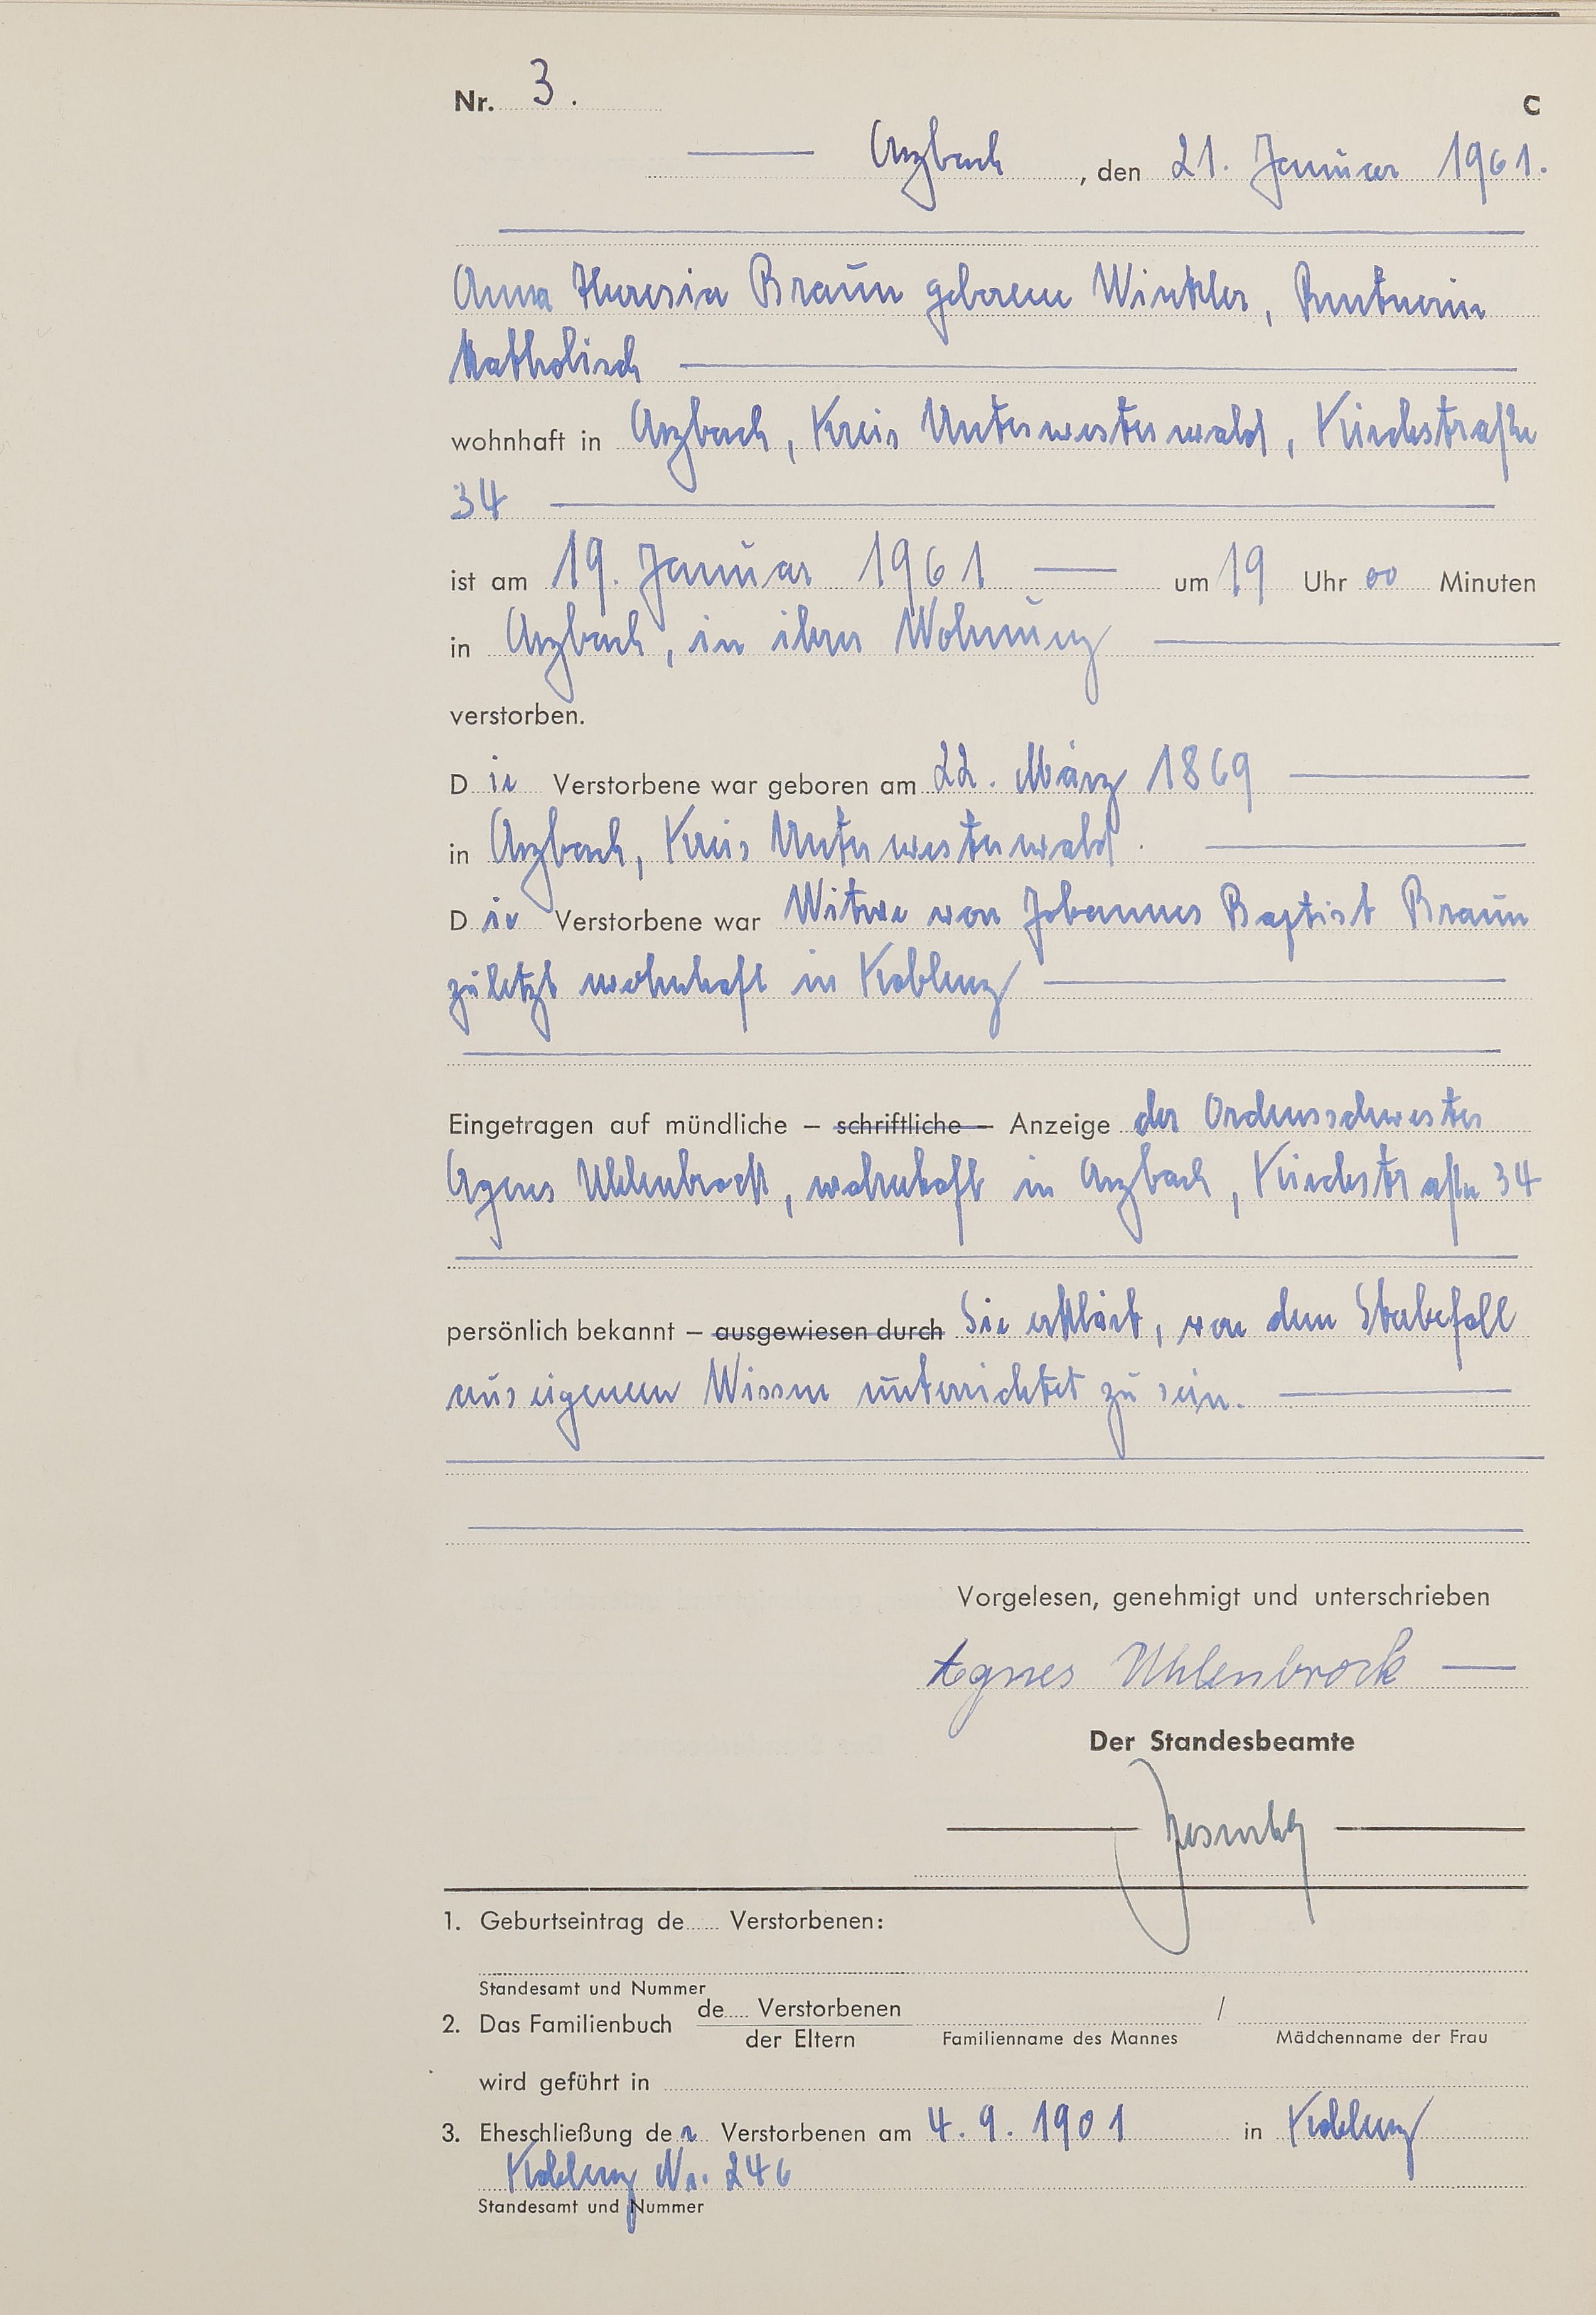 Nr. 3. C
Arzbach, den 21. Januar 1961.
Anna Theresia Braun geborene Winkler, Rentnerin
Katholisch
wohnhaft in Arzbach, Kreis Unterwesterwald, Kirchstraße
34
ist am 19. Januar 1961 um 19 Uhr 00 Minuten
in Arzbach, in ihrer Wohnung
verstorben.
Die Verstorbene war geboren am 22. März 1869
in Arzbach, Kreis Unterwesterwald.
Die Verstorbene war Witwe von Johannes Baptist Braun
zuletzt wohnhaft in Koblenz
Eingetragen auf mündliche – schriftliche – Anzeige der Ordensschwester
Agnes Uhlenbrock, wohnhaft in Arzbach, Kirchstraße 34
persönlich bekannt – ausgewiesen durch Sie erklärt, von dem Sterbefall
aus eigenem Wissen unterrichtet zu sein.
Vorgelesen, genehmigt und unterschrieben
Agnes Uhlenbrock
Der Standesbeamte
1. Geburtseintrag de..... Verstorbenen:
Standesamt und Nummer
2. Das Familienbuch de..... Verstorbenen /
der Eltern Familienname des Mannes Mädchenname der Frau
wird geführt in
3. Eheschließung der Verstorbenen am 4.9.1901 in Koblenz
Koblenz Nr. 246
Standesamt und Nummer